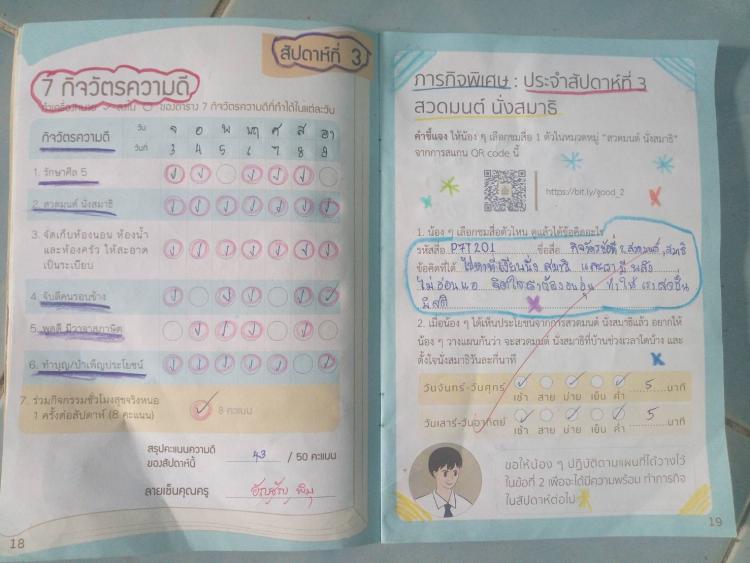 สัปดาห์ที่ 3
7 กิจวัตรความดี
ของตาราง 7 กิจวัตรความดีที่ทำได้ในแต่ละวัน
กิจวัตรความดี วัน จ อ พ พฤ ศ ส อา
วันที่ 3 4 5 6 7 8 9
1. รักษาศีล 5
2. สวดมนต์ นั่งสมาธิ
3. จัดเก็บห้องนอน ห้องน้ำ
และห้องครัว ให้สะอาด
เป็นระเบียบ
4. จับดีคนรอบข้าง
5. พูดดี มีวาจาสุภาษิต
6. ทำบุญ/บำเพ็ญประโยชน์
7. ร่วมกิจกรรมชั่วโมงสุขจริงหนอ
1 ครั้งต่อสัปดาห์ (8 คะแนน) 8 คะแนน
สรุปคะแนนความดี
ของสัปดาห์นี้ 43 / 50 คะแนน
ลายเซ็นคุณครู
18
ภารกิจพิเศษ : ประจำสัปดาห์ที่ 3
สวดมนต์ นั่งสมาธิ
คำชี้แจง ให้น้อง ๆ เลือกชมสื่อ 1 ตัวในหมวดหมู่ "สวดมนต์ นั่งสมาธิ"
จากการสแกน QR code นี้
https://bit.ly/good_2
1. น้อง ๆ เลือกชมสื่อตัวไหน ดูแล้วได้ข้อคิดอะไร
รหัสสื่อ P7T201 ชื่อสื่อ กิจวัตรข้อที่ 2 สวดมนต์ สมาธิ
ข้อคิดที่ได้ นั่ง สมาธิ และ มี พลัง
ไม่อ่อนแอ จิตใจ ทำให้
มีสติ
2. เมื่อน้อง ๆ ได้เห็นประโยชน์จากการสวดมนต์ นั่งสมาธิแล้ว อยากให้
น้อง ๆ วางแผนกันว่า จะสวดมนต์ นั่งสมาธิที่บ้านช่วงเวลาใดบ้าง และ
ตั้งใจนั่งสมาธิวันละกี่นาที
วันจันทร์-วันศุกร์ เช้า สาย บ่าย เย็น ค่ำ 5 นาที
วันเสาร์-วันอาทิตย์ เช้า สาย บ่าย เย็น ค่ำ 5 นาที
ขอให้น้อง ๆ ปฏิบัติตามแผนที่ได้วางไว้
ในข้อที่ 2 เพื่อจะได้มีความพร้อม ทำภารกิจ
ในสัปดาห์ต่อไป
19